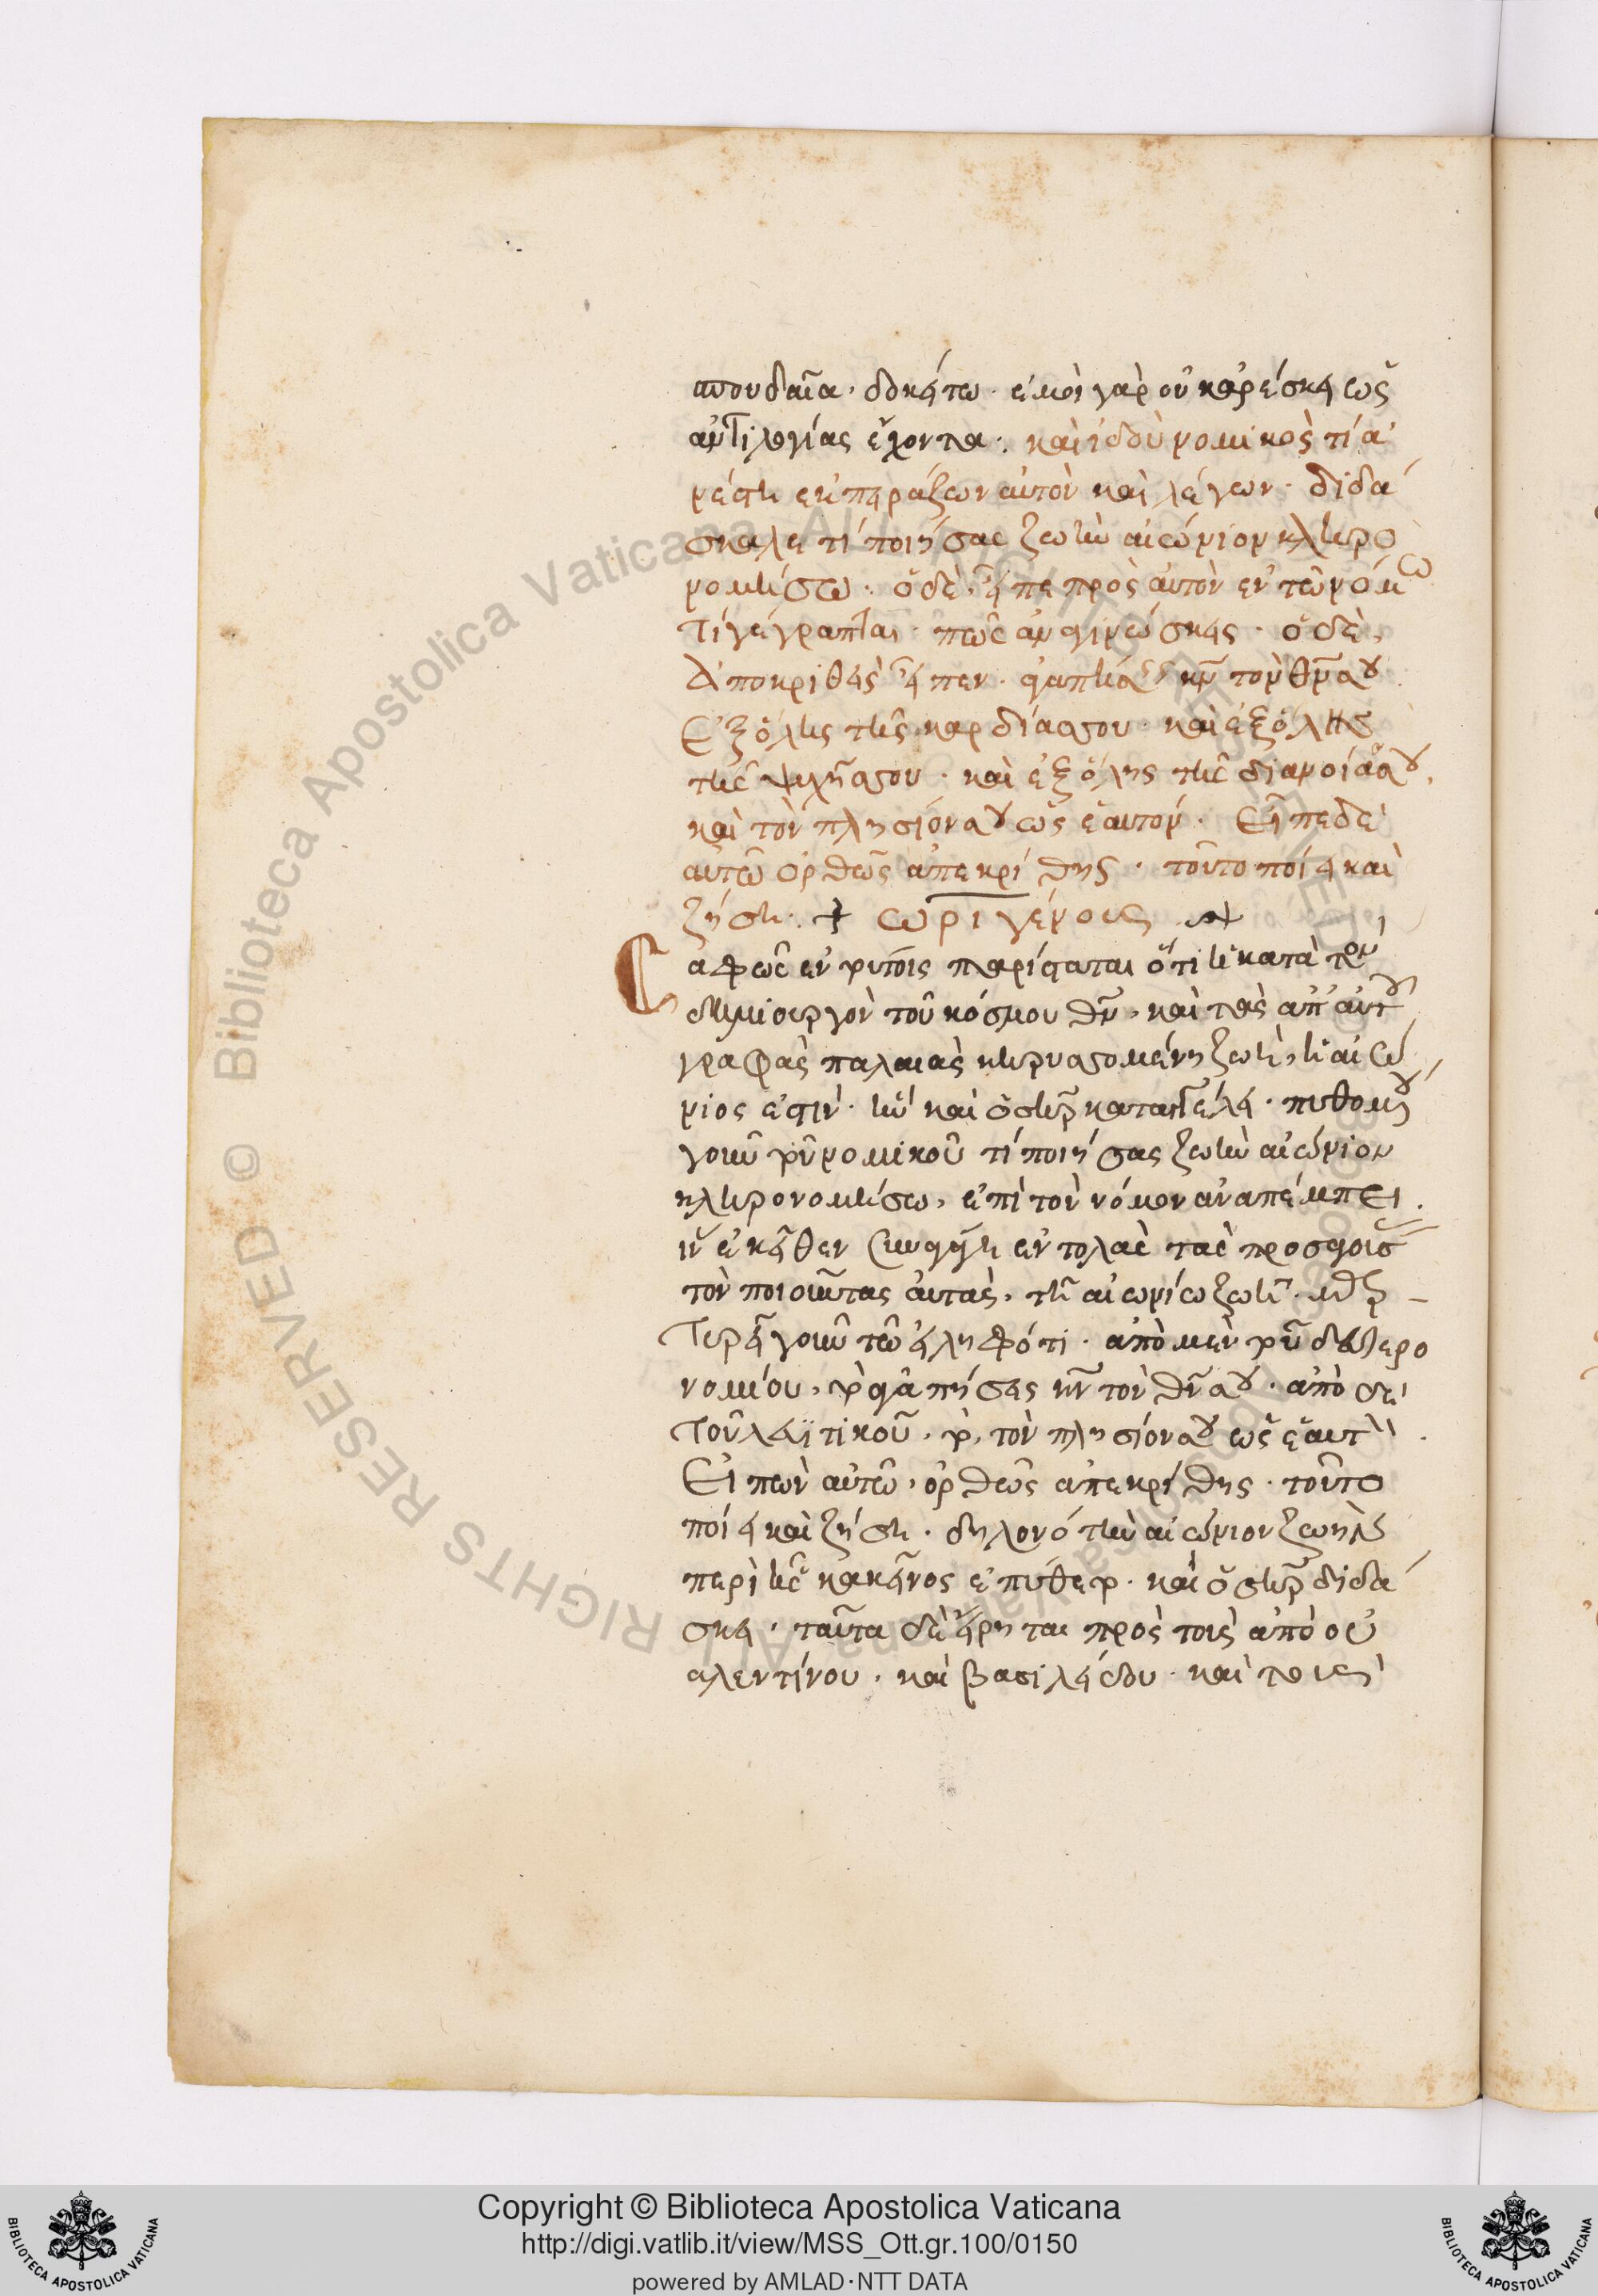 σπουδαῖα, δοκείτω· ἐμοὶ γὰρ οὐκ ἀρέσκει ὡς
ἀντιλογίας ἔχοντα· καὶ ἰδοὺ νομικὸς τὶς ἀ
νέστη ἐκπειράζων αὐτὸν καὶ λέγων· διδά
σκαλε τί ποιήσας ζωὴν αἰώνιον κληρο
νομήσω· ὁ δὲ εἶπε πρὸς αὐτὸν ἐν τῶ νόμω
τί γέγραπται· πῶς ἀναγινώσκεις· ὁ δὲ,
ἀποκριθεὶς εἶπεν· ἀγαπήσεις κν τὸν θν σου
ἐξ ὅλης τῆς καρδίας σου· καὶ ἐξ ὅλης
τῆς ψυχῆς σου· καὶ ἐξ ὅλης τῆς διανοίας σου,
καὶ τὸν πλησίον σου ὡς ἑαυτόν· Εἶπε δὲ
αὐτῶ ὀρθῶς ἀπεκρίθης· τοῦτο ποίει καὶ
ζήση· ὠριγένους
Σαφῶς ἐν τούτοις παρίσταται ὅτι ἡ κατὰ τὸν
δημιουργὸν τοῦ κόσμου θν, καὶ τὰς ἀπ' αὐτοῦ
γραφὰς παλαιὰς κηρυσσομένη ζωὴ, ἡ αἰώ
νιος ἐστὶν· ἣν καὶ ὁ σηρ καταγγέλει· πυθομένου
γοῦν τοῦ νομικοῦ τί ποιήσας ζωὴν αἰώνιον
κληρονομήσω, ἐπὶ τὸν νόμον ἀναπέμπει.
ἐκεῖθεν ἐντολὰς τὰς
τὸν ποιοῦντας αὐτὰς, τῆ αἰωνίω ζωῆ·
γοῦν τῶ εἰληφότι· ἀπὸ μὲν τοῦ δευτερο
νομίου, τὸ ἀγαπήσεις κν τὸν θν σου· ἀπὸ δὲ
τοῦ λευϊτικοῦ, τὸ, τὸν πλησίον σου ὡς ἑαυτόν.
Εἰπὼν αὐτῶ, ὀρθῶς ἀπεκρίθης· τοῦτο
ποίει καὶ ζήση· δηλονότι τὴν αἰώνιον ζωὴν
περὶ ἧς κἀκεῖνος ἐπύθετο· καὶ ὁ σηρ διδά
σκει· ταῦτα δὲ εἴρηται πρὸς τοὺς ἀπὸ οὐ
αλεντίνου, καὶ βασιλείδου· καὶ τοὺς
Copyright © Biblioteca Apostolica Vaticana
http://digi.vatlib.it/view/MSS_Ott.gr.100/0150
powered by AMLAD·NTT DATA
BIBLIOTECA APOSTOLICA VATICANA
BIBLIOTECA APOSTOLICA VATICANA